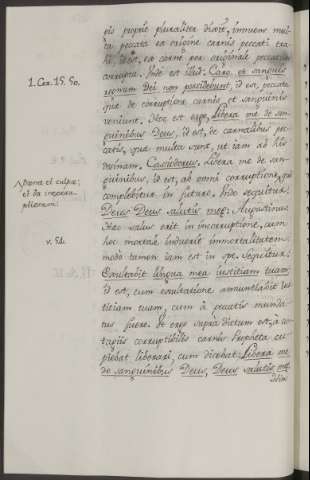 pis propriè pluraliter dixit, innuens mul-
ta peccata ex origine carnis peccati tra-
hi, id est, ex carne per originale peccatum
corrupta. Inde est illud: Caro, et sanguis
regnum Dei non possidebunt, id est, peccata
quæ de corruptione carnis, et sanguinis
veniunt. Hoc est ergo, Libera me de san-
guinibus Deus, id est, de carnalibus pec-
catis, quæ multa sunt, ut iam ad his
desinam. Cassiodorus. Libera me de san-
guinibus, id est, ab omni corruptione, quæ
complebitur in futuro. Inde sequitur:
Deus Deus salutis meæ. Augustinus
Hæc salus erit in incorruptione, cum
hoc mortale induerit immortalitatem:
modo tamen iam est in spe. Sequitur:
Exultabit lingua mea iustitiam tuam,
id est, cum exultatione annuntiabit ius
titiam tuam, cum à peccatis munda-
tus fuero. Et ergo suprà dictum est, à con-
tagiis corruptibilis carnis Propheta cu-
piebat liberari, cum dicebat: Libera me
de sanguinibus Deus, Deus salutis meæ
1. Cor. 15. 50.
pœna et culpæ:
v. 54.